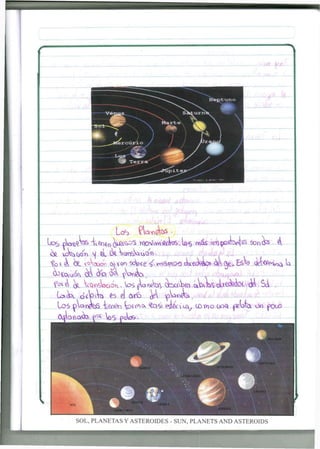 Neptuno
Venus
Saturno
Marte
Sol
Urano
Mercurio
Luna
Tierra
Júpiter
Los Planetas
Los planetas tienen diversos movimientos. los más importantes son dos: el
de rotación y el de translación.
Por el de rotación giran sobre sí mismos alrededor del eje. Esto determina la
duración del día del planeta.
Por el de translación, los planetas describen orbitas alrededor del Sol.
Cada órbita es el año del planeta
Los planetas tienen forma casi esférica, como una pelota un poco
aplanada por los polos.
SOL, PLANETAS Y ASTEROIDES - SUN, PLANETS AND ASTEROIDS